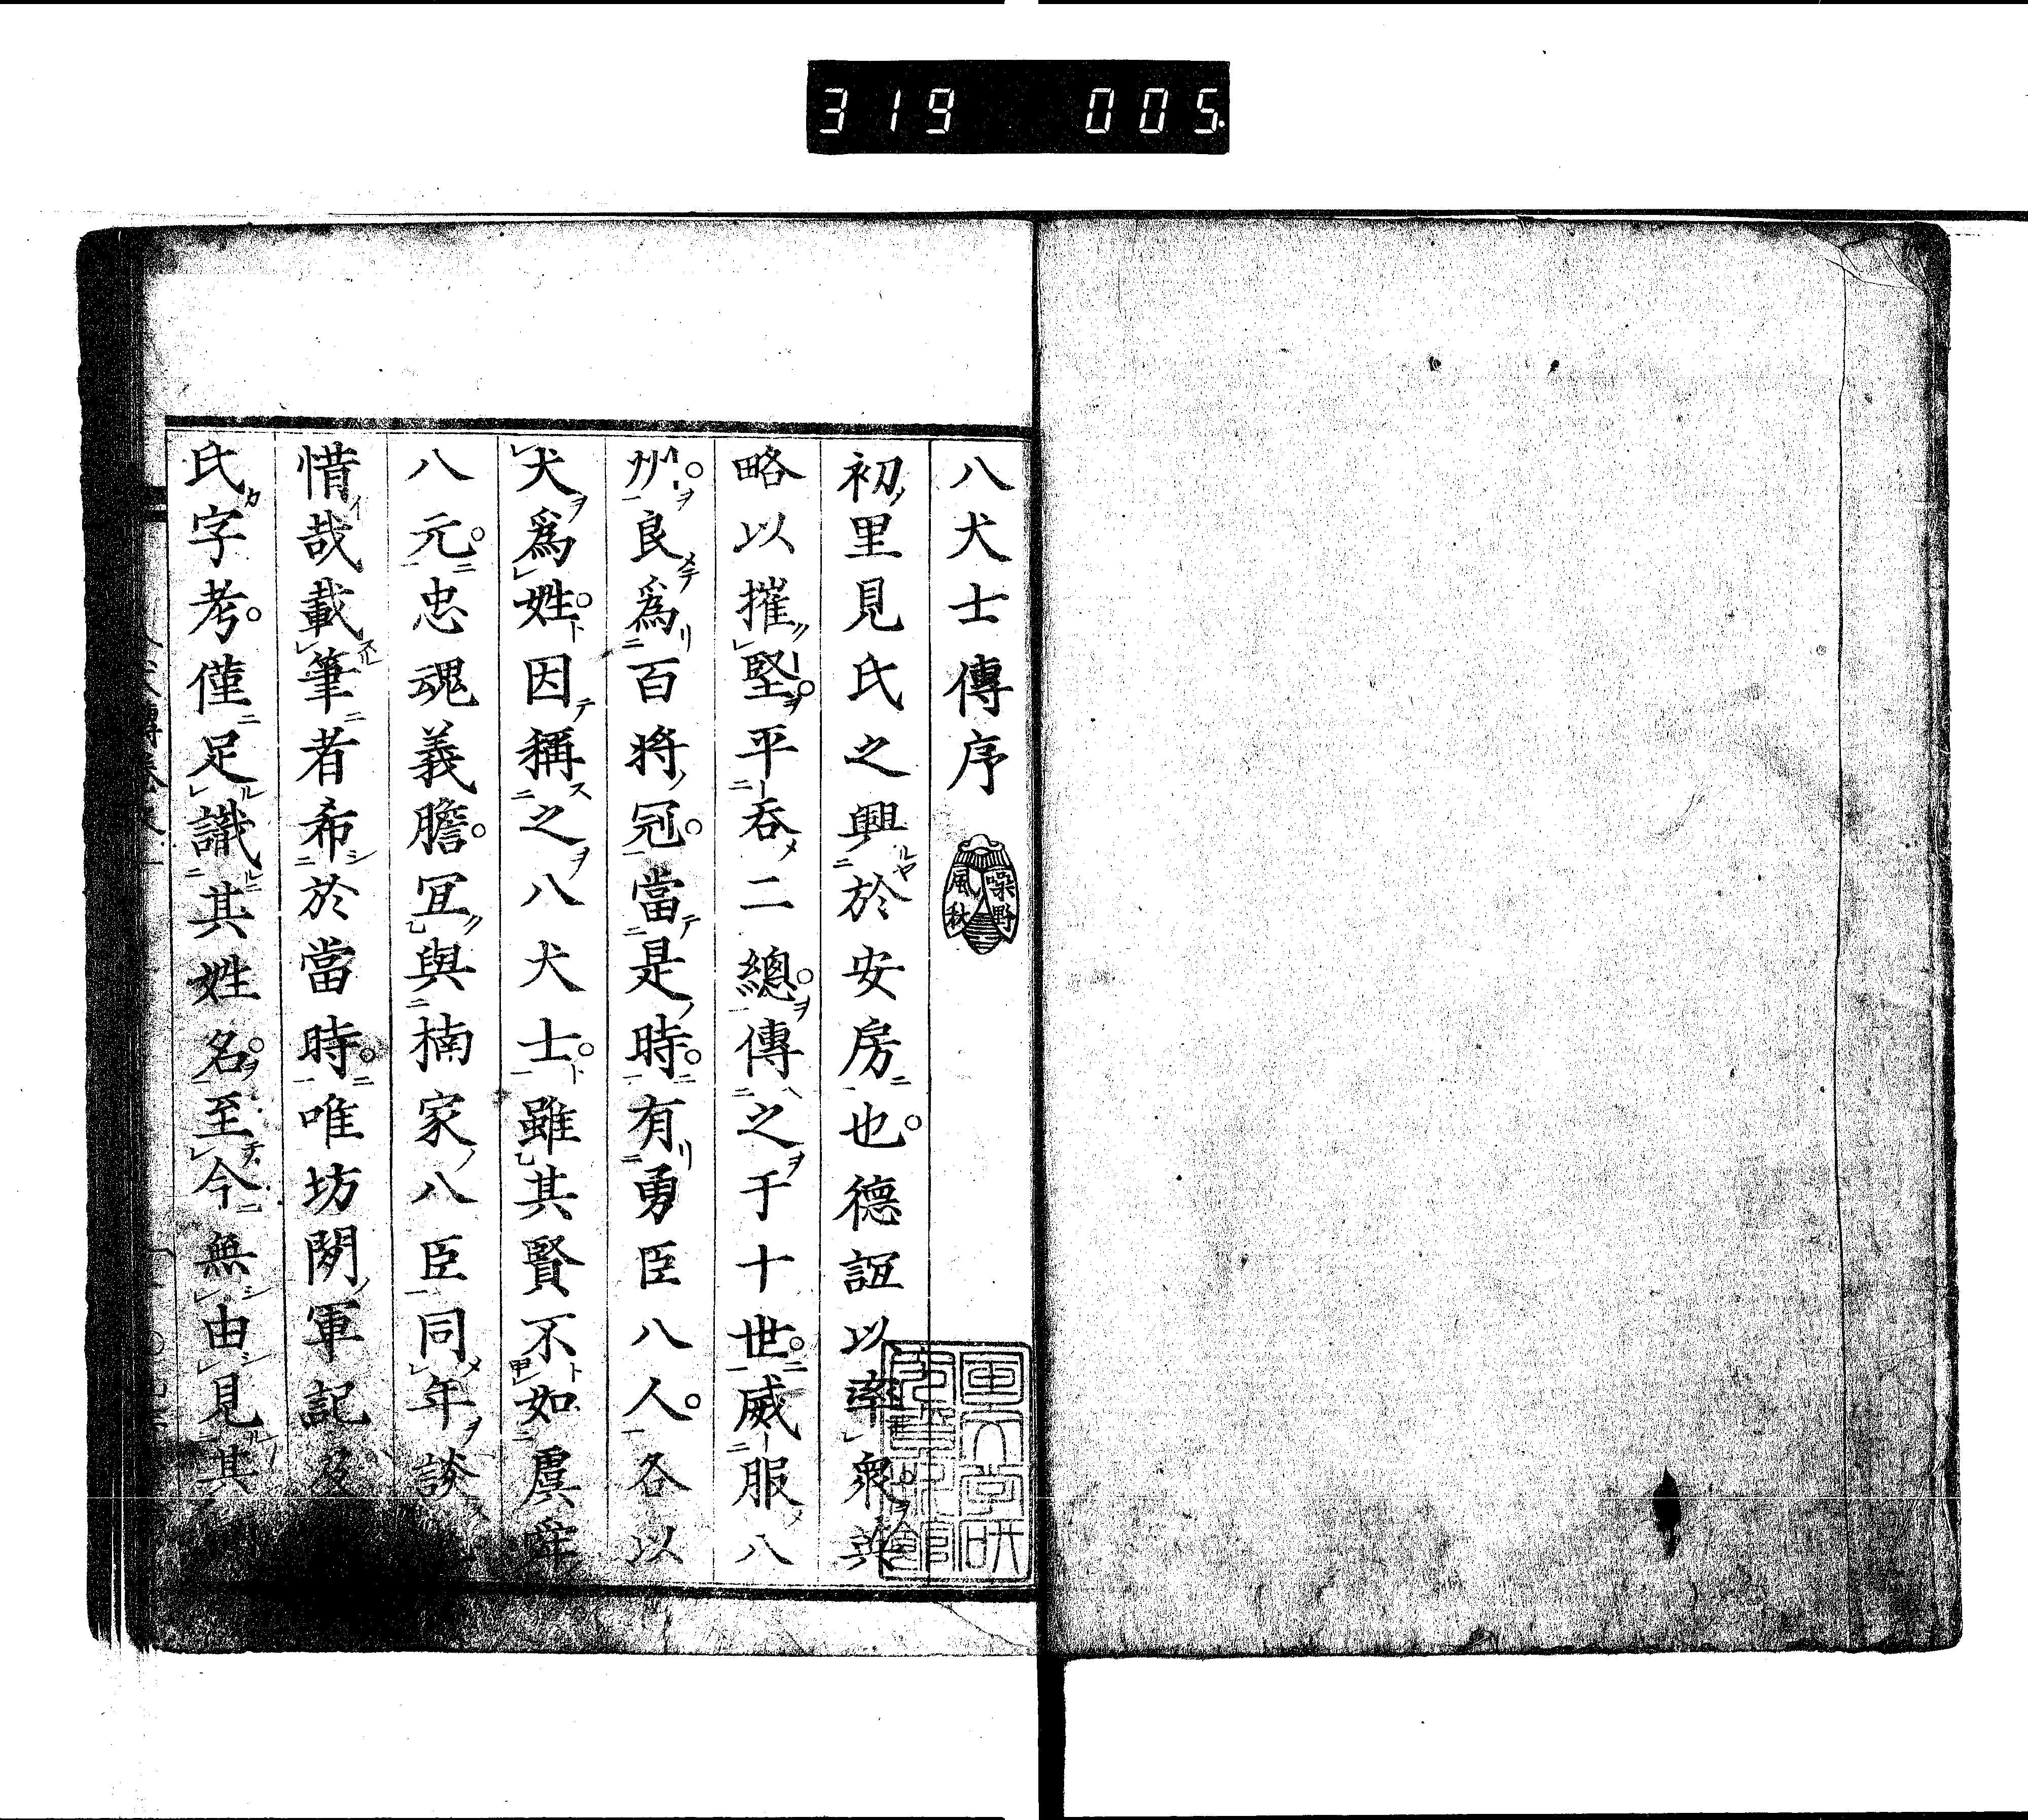 319 005
八犬士傳序
噪野
風秋
初里見氏之興於安房也德誼以率衆英
略以摧堅平吞二總傳之于十世威服八
州良爲百將冠當是時有勇臣八人各以
犬爲姓因稱之八犬士雖其賢不如虞舜
八元忠魂義膽宜與楠家八臣同年談
惜哉載筆者希於當時唯坊間軍記及
氏字考僅足識其姓名至今無由見其